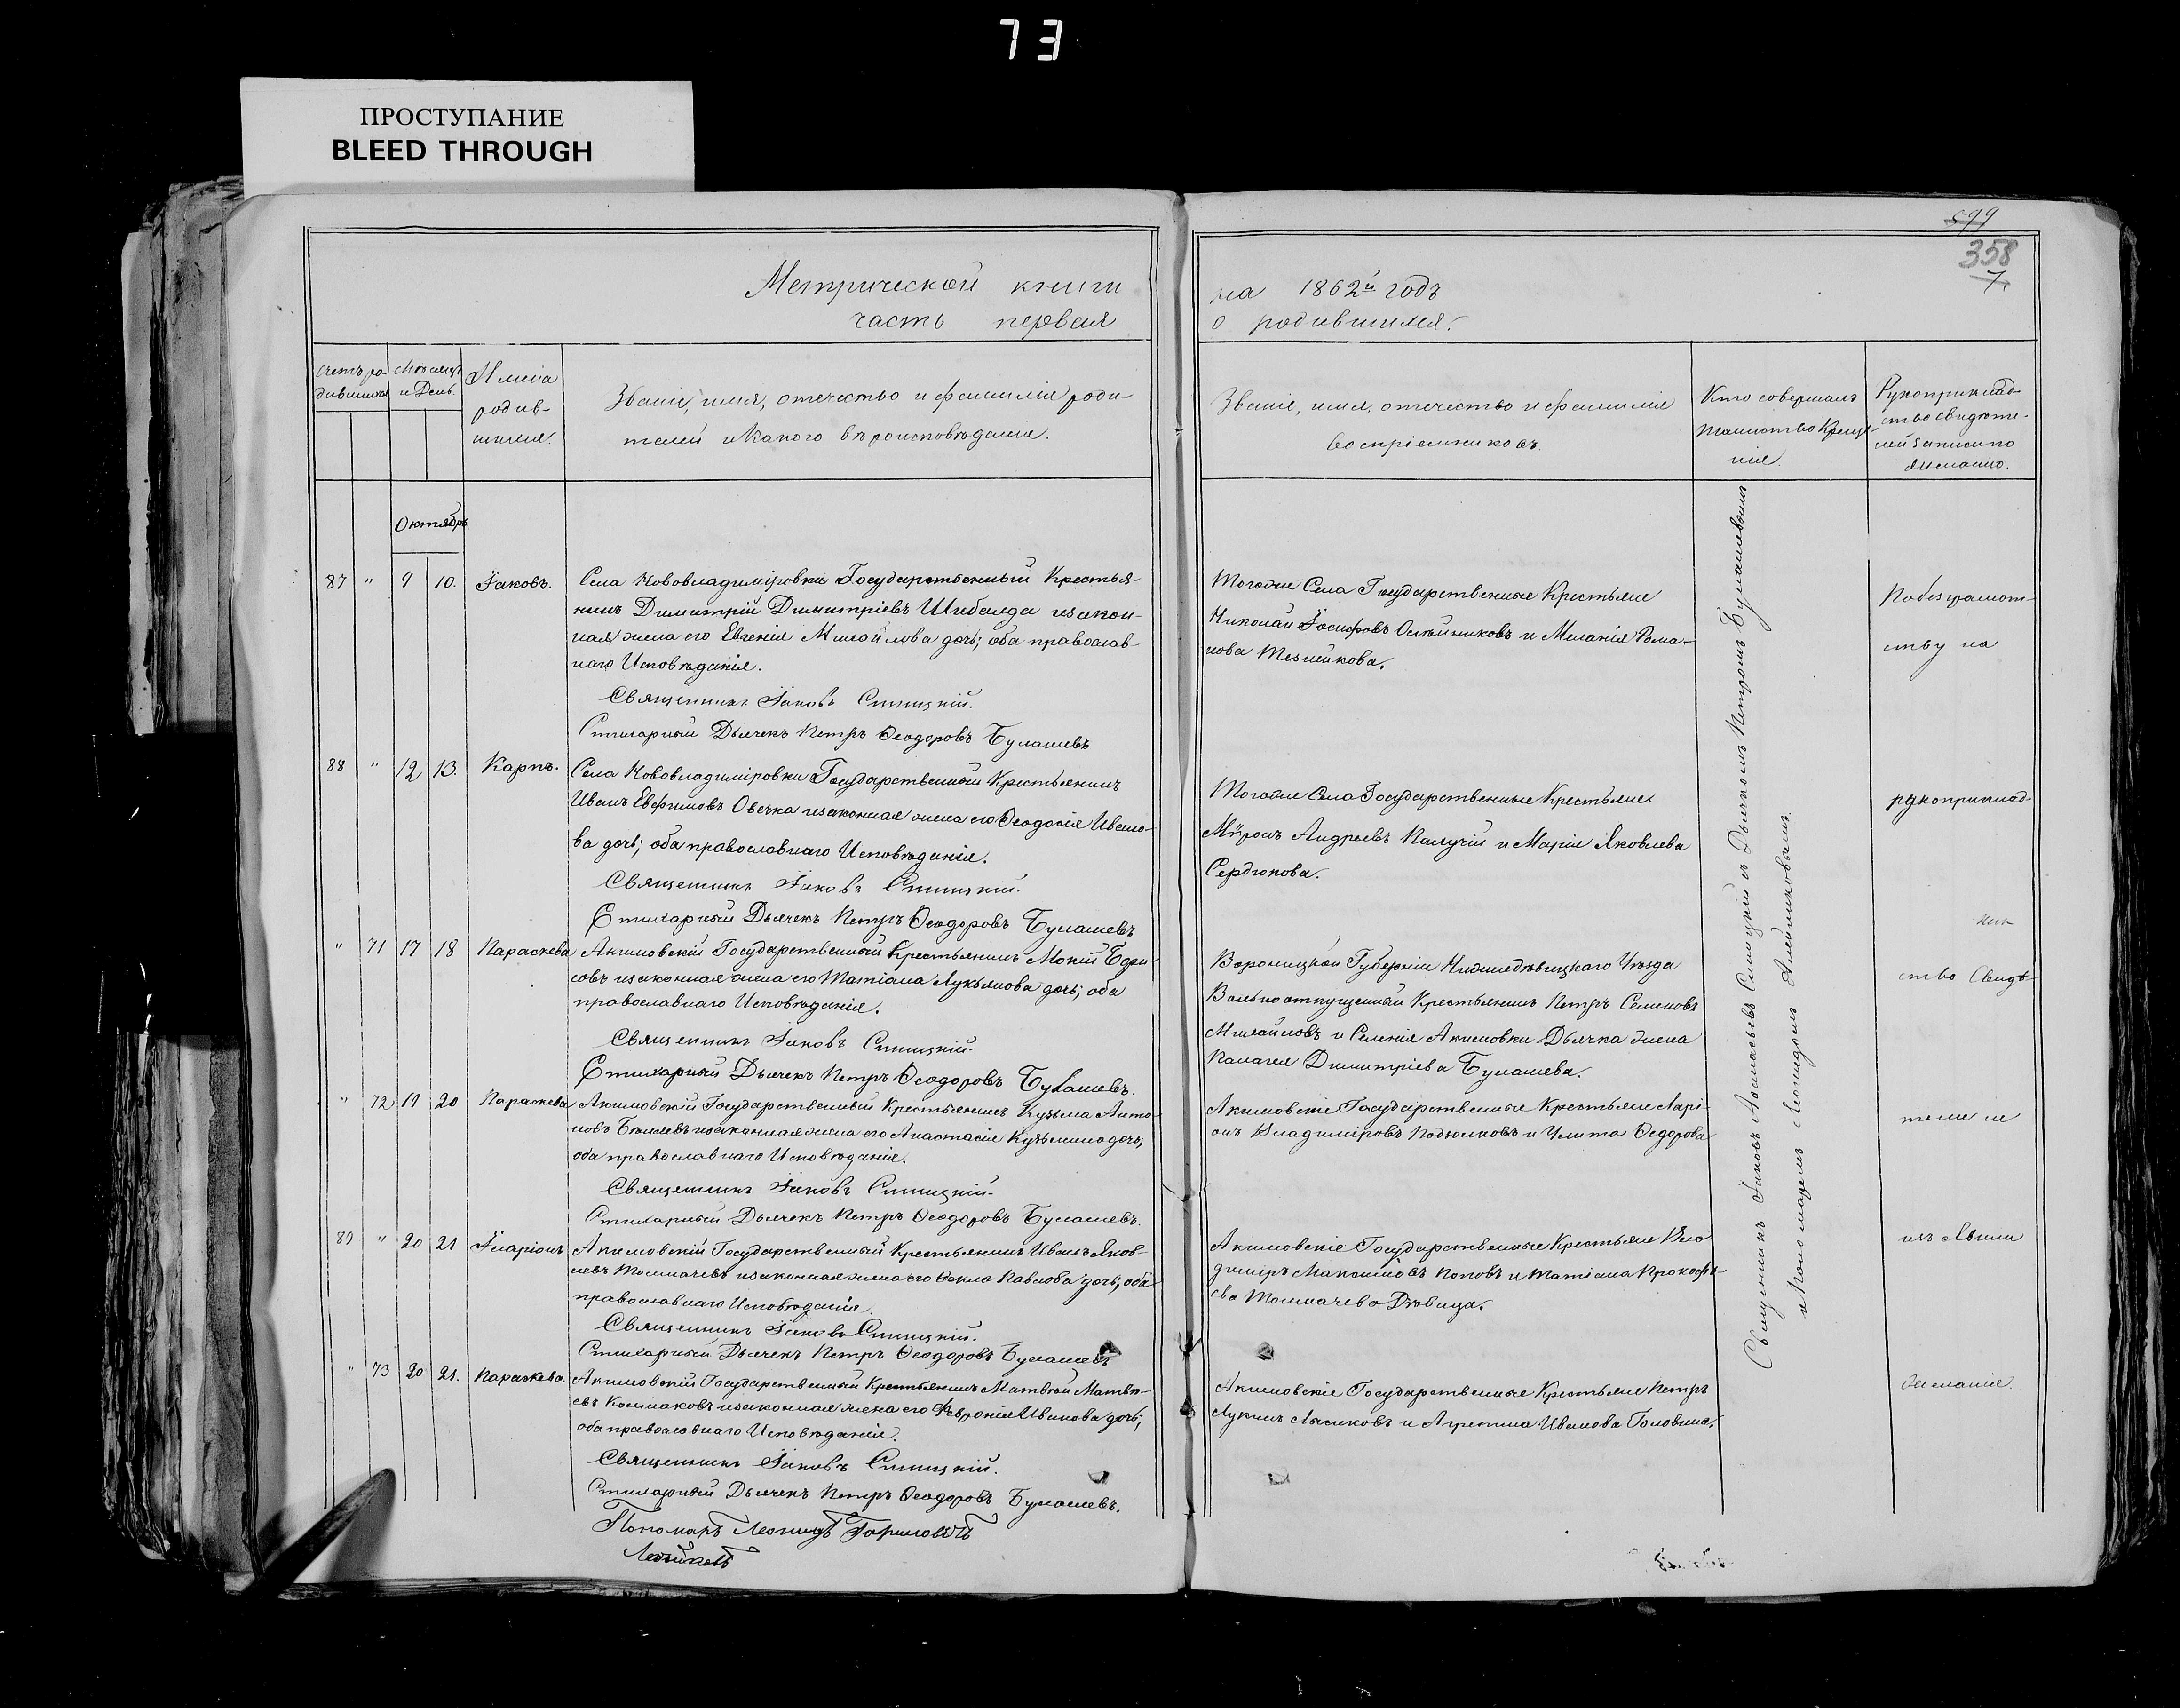 73
ПРОСТУПАНИЕ
BLEED THROUGH
599
358
7.
Метрической книги
часть первая
на 1862й годъ
о родившихся.
Счетъ ро-
дившихся
Мѣсяцъ
и День.
Имена
родив-
шихся.
Званіе, имя, отечество и фамилія роди-
телей и какого вѣроисповѣданія.
Званіе, имя, отечество и фамилія
воспріемниковъ.
Кто совершалъ
таинство Креще-
нія.
Рукоприклад-
ство свидѣте-
лей записи по
желанію.
Октябрь
87 " 9 10. Іаковъ.
Села Нововладиміровки Государственный Крестья-
нинъ Димитрій Димитріевъ Шибалда и законн-
ная жена его Евгенія Михайлова дочь; оба православ-
наго Исповѣданія.
Священникъ Іаковъ Синицкій.
Стихарный Дьячекъ Петръ Ѳеодоровъ Булашевъ
Тогоже Села Государственные Крестьяне
Николай Іосифовъ Олейниковъ и Меланія Рома-
нова
По безграмот-
ству на
88 " 12 13. Карпъ.
Села Нововладиміровки Государственный Крестьянинъ
Иванъ Евфимовъ Овечка и законная жена его Ѳеодосія Ивано-
ва дочь; оба православнаго Исповѣданія.
Священникъ Іаковъ Синицкій.
Стихарный Дьячекъ Петръ Ѳеодоровъ Булашевъ
Тогоже Села Государственные Крестьяне
Мѵронъ Андреевъ Палучій и Марія Яковлева
Сердюкова.
рукоприклад-
" 71 17 18 Параскева
Акимовскій Государственный Крестьянинъ Мокій Бори-
совъ и законная жена его Татіана Лукьянова дочь; оба
православнаго Исповѣданія.
Священникъ Іаковъ Синицкій.
Стихарный Дьячекъ Петръ Ѳеодоровъ Булашевъ.
Воронежской Губерніи Нижнедѣвицкаго Уѣзда
Вольноотпущенный Крестьянинъ Петръ Семеновъ
Михайловъ и Селенія Акимовки Дьячка жена
Палагея Димитріева Булашева.
ство Свидѣ-
" 72 19 20 Параскева
Акимовскій Государственный Крестьянинъ Кузьма Анто-
новъ Бѣляевъ и законная жена его Анастасія Кузьмина дочь,
оба православнаго Исповѣданія.
Священникъ Іаковъ Синицкій.
Стихарный Дьячекъ Петръ Ѳеодоровъ Булашевъ.
Акимовскіе Государственные Крестьяне Ларі-
онъ Владиміровъ и Улита Ѳедорова
тели не
89 " 20 21 Іларіонъ
Акимовскій Государственный Крестьянинъ Иванъ Яков-
левъ Толмачевъ и законная жена его Ѳекла Павлова дочь, оба
православнаго Исповѣданія.
Священникъ Іаковъ Синицкій.
Стихарный Дьячекъ Петръ Ѳеодоровъ Булашевъ
Акимовскіе Государственные Крестьяне Вла-
диміръ Максимовъ Поповъ и Татіана Прокофь-
ева Толмачева Дѣвица.
изъявили
" 73 20 21. Параскева.
Акимовскій Государственный Крестьянинъ Матвѣй Матвѣ-
евъ Колмаковъ и законная жена его Ѳевронія Иванова дочь;
оба православнаго Исповѣданія.
Священникъ Іаковъ Синицкій.
Стихарный Дьячекъ Петръ Ѳеодоровъ Булашевъ.
Пономарь Леонидъ
Акимовскіе Государственные Крестьяне Петръ
Лукинъ Лясиковъ и Агрепина Иванова Головина.
желанія.
Священникъ Іаковъ Аѳанасьевъ Синицкій съ Дьячкомъ Петромъ Булашевымъ
и Пономаремъ Леонидомъ Алейниковымъ.